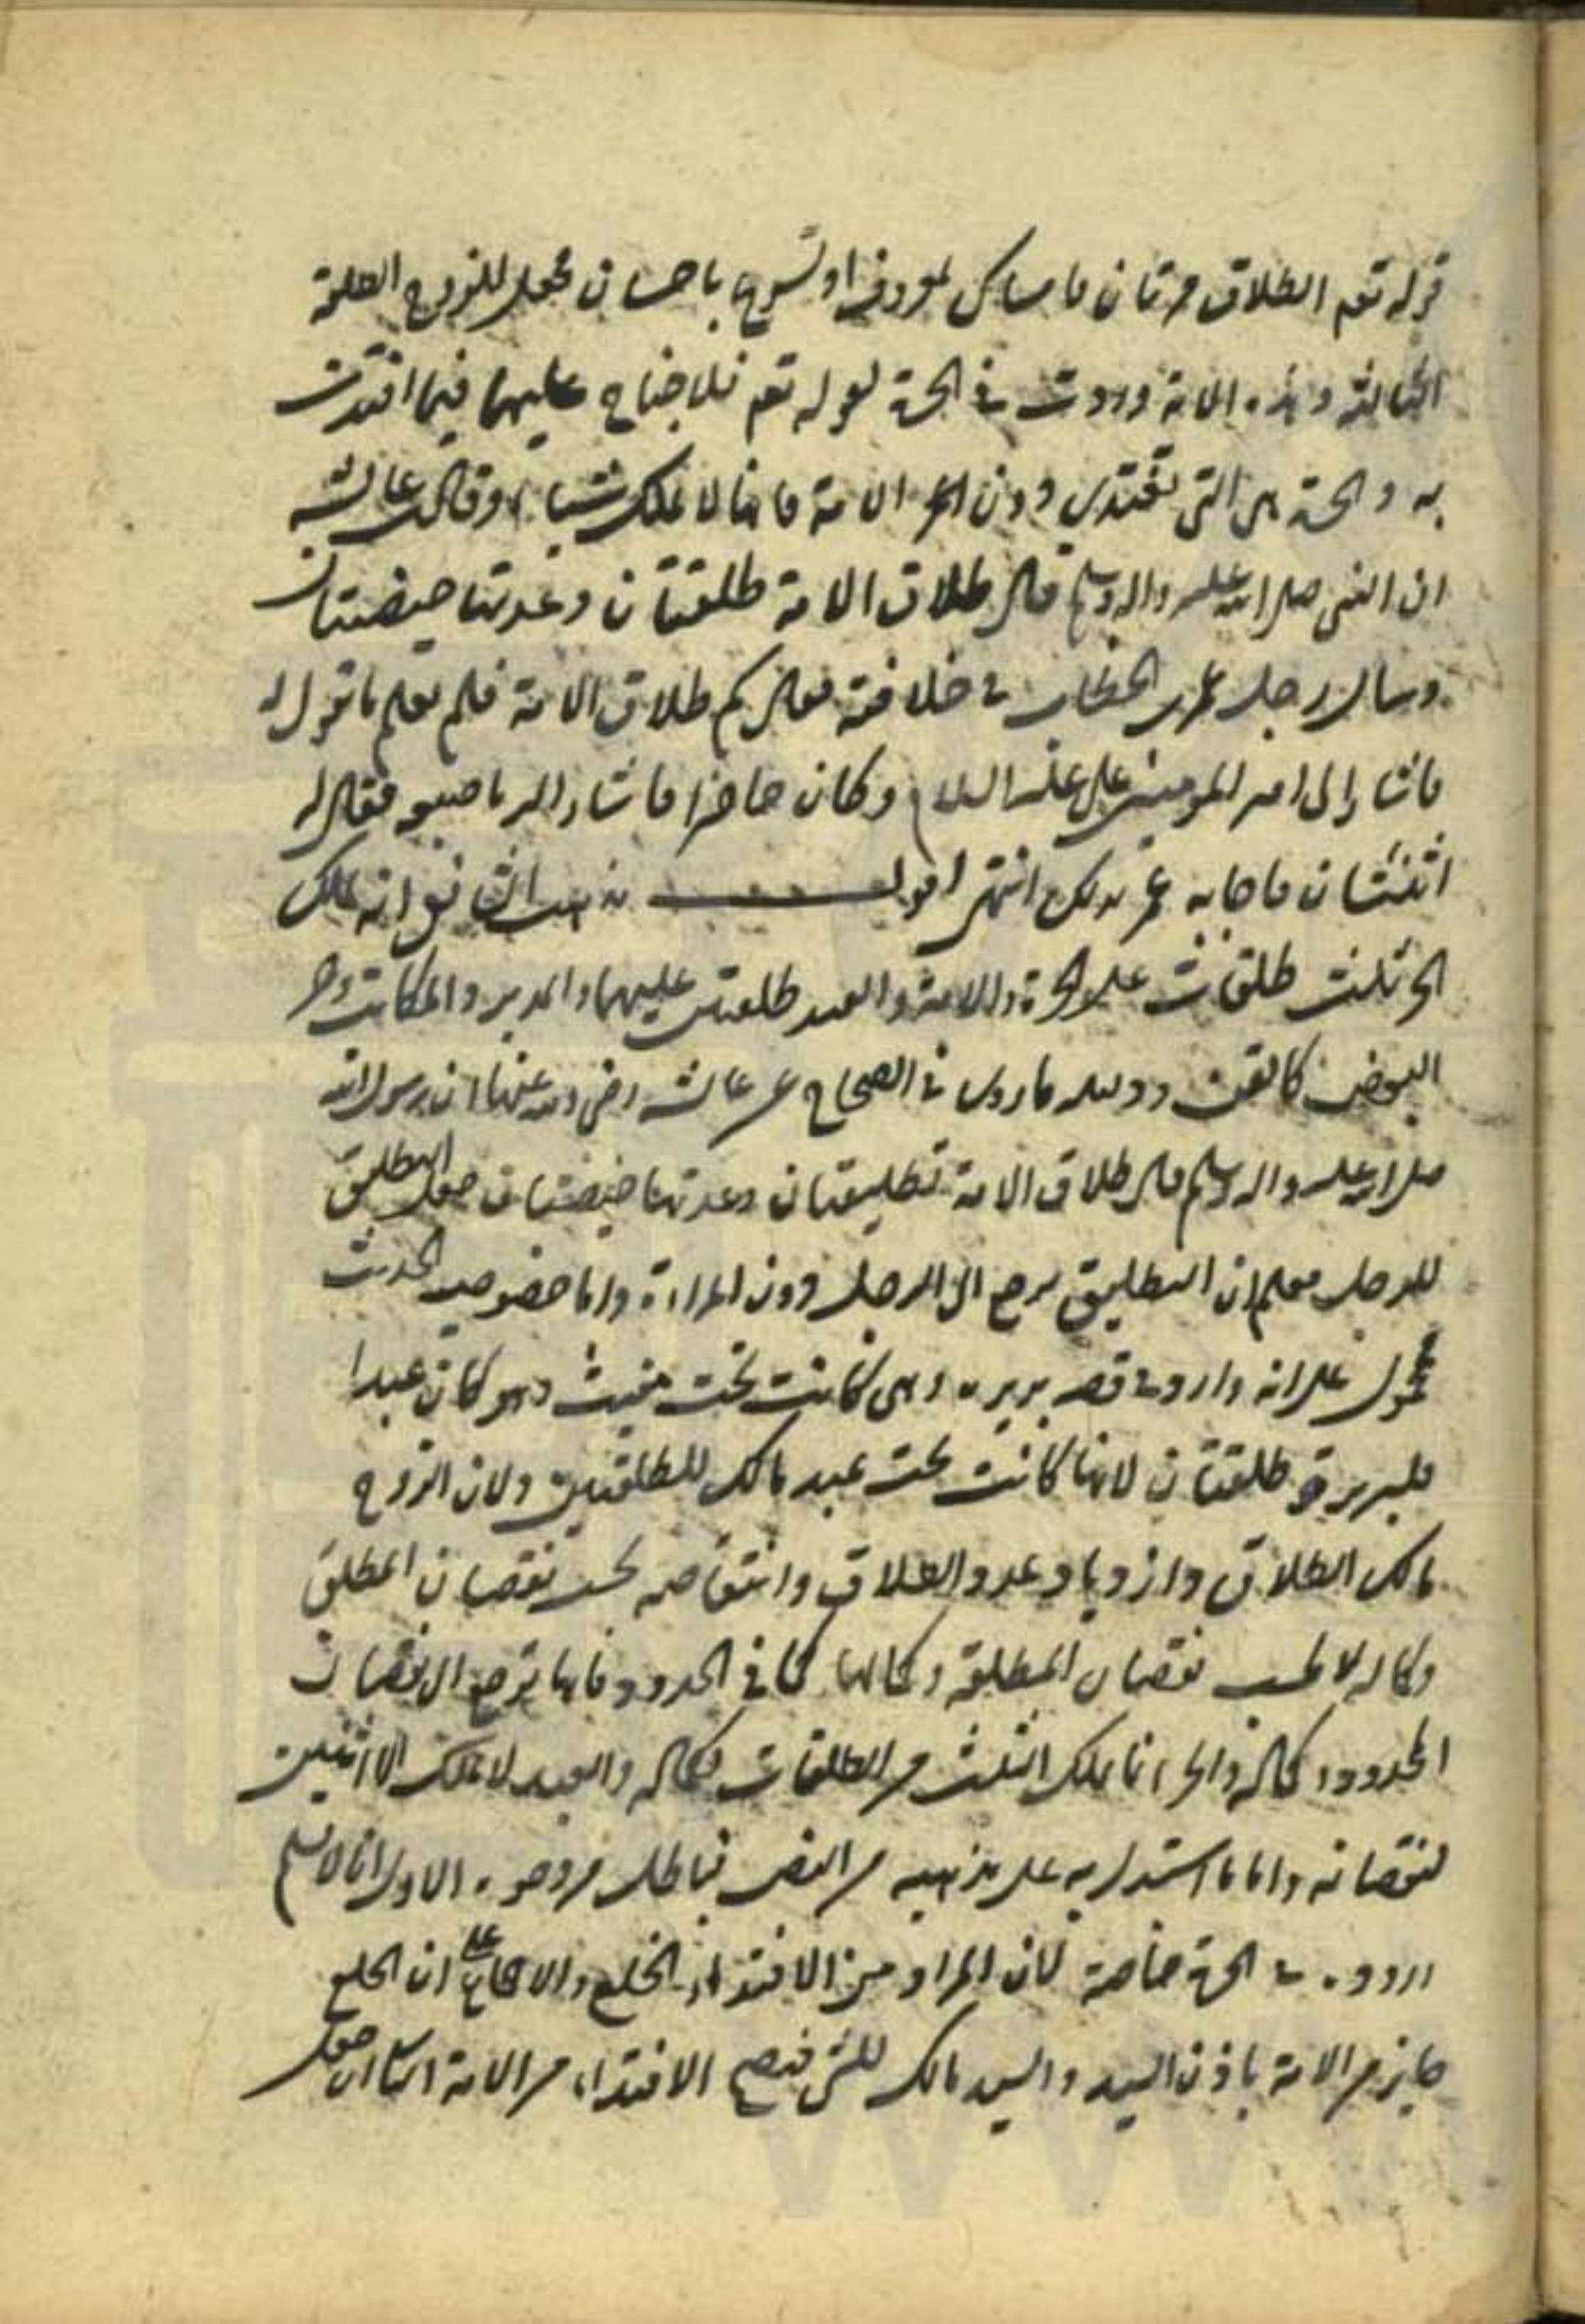 قوله تعم الطلاق مرتان فامساك بمعروف او تسريح باحسان فجعل للزوج الطلقة
الثالثة وهذه الاية وردت في الحرة لقوله تعم فلا جناح عليهما فيما افتدت
به والحرة هى التي تفتدى دون الامة فانها لا تملك شيئا وقالت عايشه
ان النبي صلى الله عليه واله وسلم قال طلاق الامة طلقتان وعدتها حيضتان
وسال رجل عمر بن الخطاب في خلافته فقال كم طلاق الامة فلم يعلم ما يقول له
فاشار الى امير المومنين على عليه السلام وكان حاضرا فاشار اليه باصبعيه فقال له
اثنتان فاجابه عمر بذلك انتهى اقول مذهب الشافعى انه يملك
الحر ثلث طلقات على الحرة والامة والعبد طلقتين عليهما والمدبر والمكاتب وحر
البعض كالقن ودليله ما روى في الصحاح عن عايشه رضى الله عنها ان رسول الله
صلى الله عليه واله وسلم قال طلاق الامة تطليقتان وعدتها حيضتان جعل التطليق
للرجل فعلم ان التطليق يرجع الى الرجل دون المراة واما خصوصية الحديث
فمحمول على انه وارد في قصة بريره وهى كانت تحت مغيث وهو كان عبدا
فلبريرة طلقتان لانها كانت تحت عبد مالك للطلقتين ولان الزوج
مالك الطلاق وازدياد عدد الطلاق وانتقاصه بحسب نقصان المطلق
وكماله لا بحسب نقصان المطلقة وكمالها كما في الحدود فانها ترجع الى نقصان
المحدود وكماله والحر انما يملك الثلث من الطلقات لكماله والعبد لا يملك الا اثنتين
لنقصانه واما ما استدل به على مذهبه من النص فباطل من وجوه الاول انا لا نسلم
وروده في الحرة خاصة لان المراد من الافتداء الخلع والاجماع على ان الخلع
جايز من الامة باذن السيد والسيد مالك للشى فيصح الافتداء من الامة الثانى ان جعل